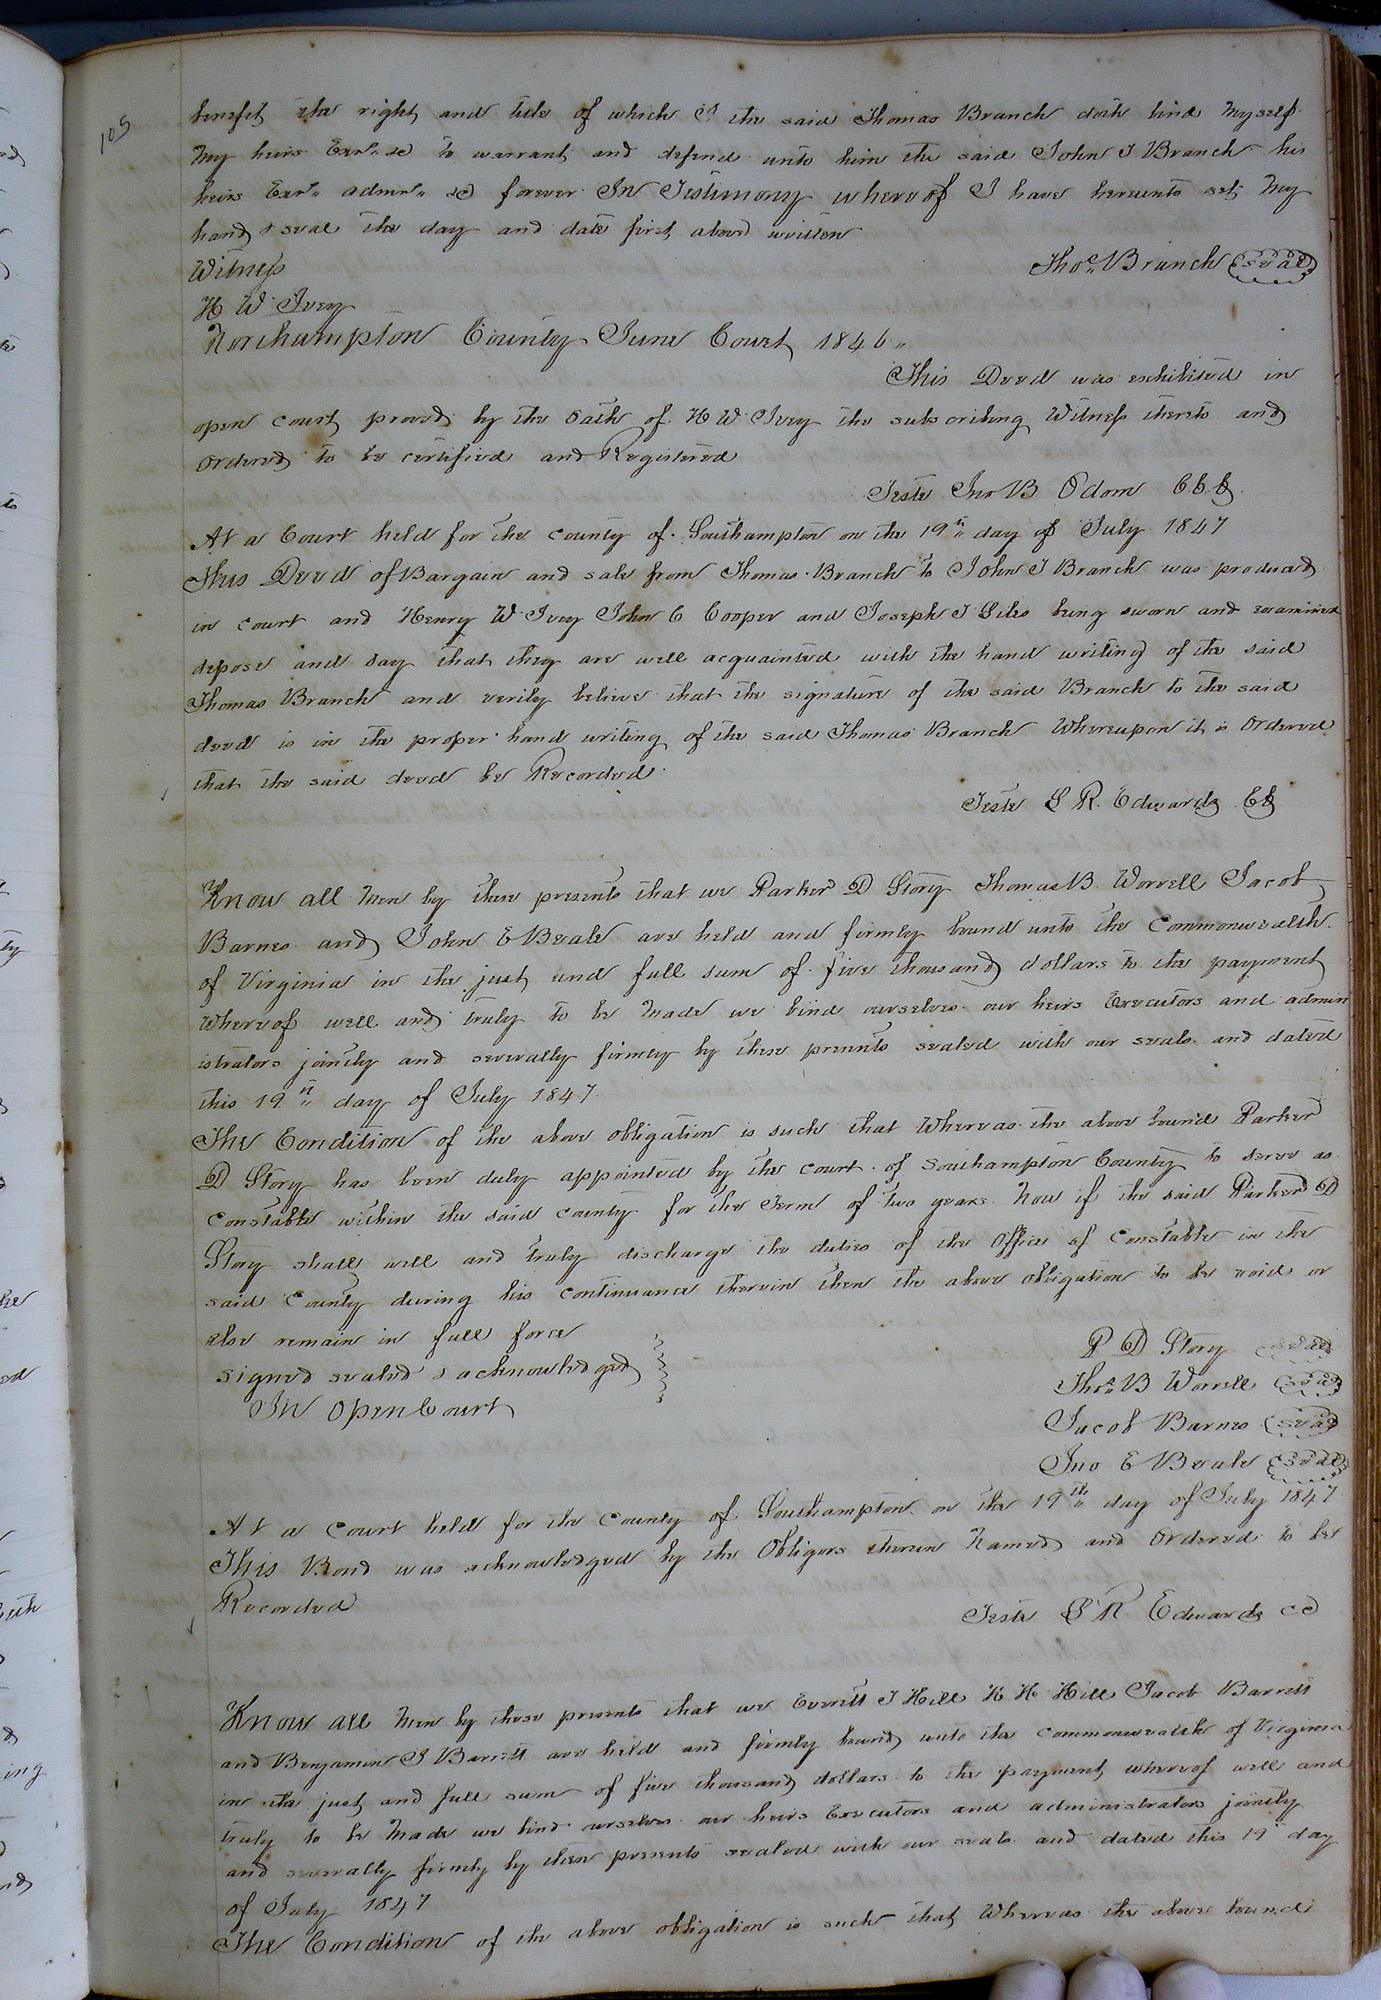 105
benefit the right and title of which I the said Thomas Branch doth bind myself
my heirs Exrs &c to warrant and defend unto him the said John J Branch his
heirs Exrs admrs &c forever In Testimony whereof I have hereunto set my
hand & seal the day and date first above written
Witness
Thos Branch (seal)
H W Ivey
Northampton County June Court 1846
This Deed was exhibited in
open court proved by the oath of H W Ivey the subscribing Witness thereto and
Ordered to be certified and Registered
Teste Jno B Odom C.C.C.
At a Court held for the county of Southampton on the 19th day of July 1847
This Deed of Bargain and sale from Thomas Branch to John J Branch was produced
in court and Henry W Ivey John C Cooper and Joseph J Giles being sworn and examined
depose and say that they are well acquainted with the hand writing of the said
Thomas Branch and verily believe that the signature of the said Branch to the said
deed is in the proper hand writing of the said Thomas Branch Whereupon it is Ordered
that the said deed be Recorded
Teste L R. Edwards CC
Know all men by these presents that we Parker D Story Thomas B. Worrell Jacob
Barnes and John E Beale are held and firmly bound unto the Commonwealth
of Virginia in the just and full sum of five thousand dollars to the payment
whereof well and truly to be made we bind ourselves our heirs Executors and admin
istrators jointly and severally firmly by these presents sealed with our seals and dated
this 19th day of July 1847
The Condition of the above obligation is such that Whereas the above bound Parker
D Story has been duly appointed by the court of Southampton County to serve as
Constable within the said county for the Term of two years Now if the said Parker D
Story shall well and truly discharge the duties of the Office of Constable in the
said County during his continuance therein then the above obligation to be void or
else remain in full force
P D Story (seal)
signed sealed & acknowledged
Thos B Worrell (seal)
In Open Court
Jacob Barnes (seal)
Jno E Beale (seal)
At a Court held for the County of Southampton on the 19th day of July 1847
This Bond was acknowledged by the Obligors therein Named and Ordered to be
Recorded
Teste L R Edwards CC
Know all men by these presents that we Everitt J Hill H H Hill Jacob Barrett
and Benjamin J Barrett are held and firmly bound unto the commonwealth of Virginia
in the just and full sum of five thousand dollars to the payment whereof well and
truly to be made we bind ourselves our heirs Executors and administrators jointly
and severally firmly by these presents sealed with our seals and dated this 19th day
of July 1847
The Condition of the above obligation is such that Whereas the above bound